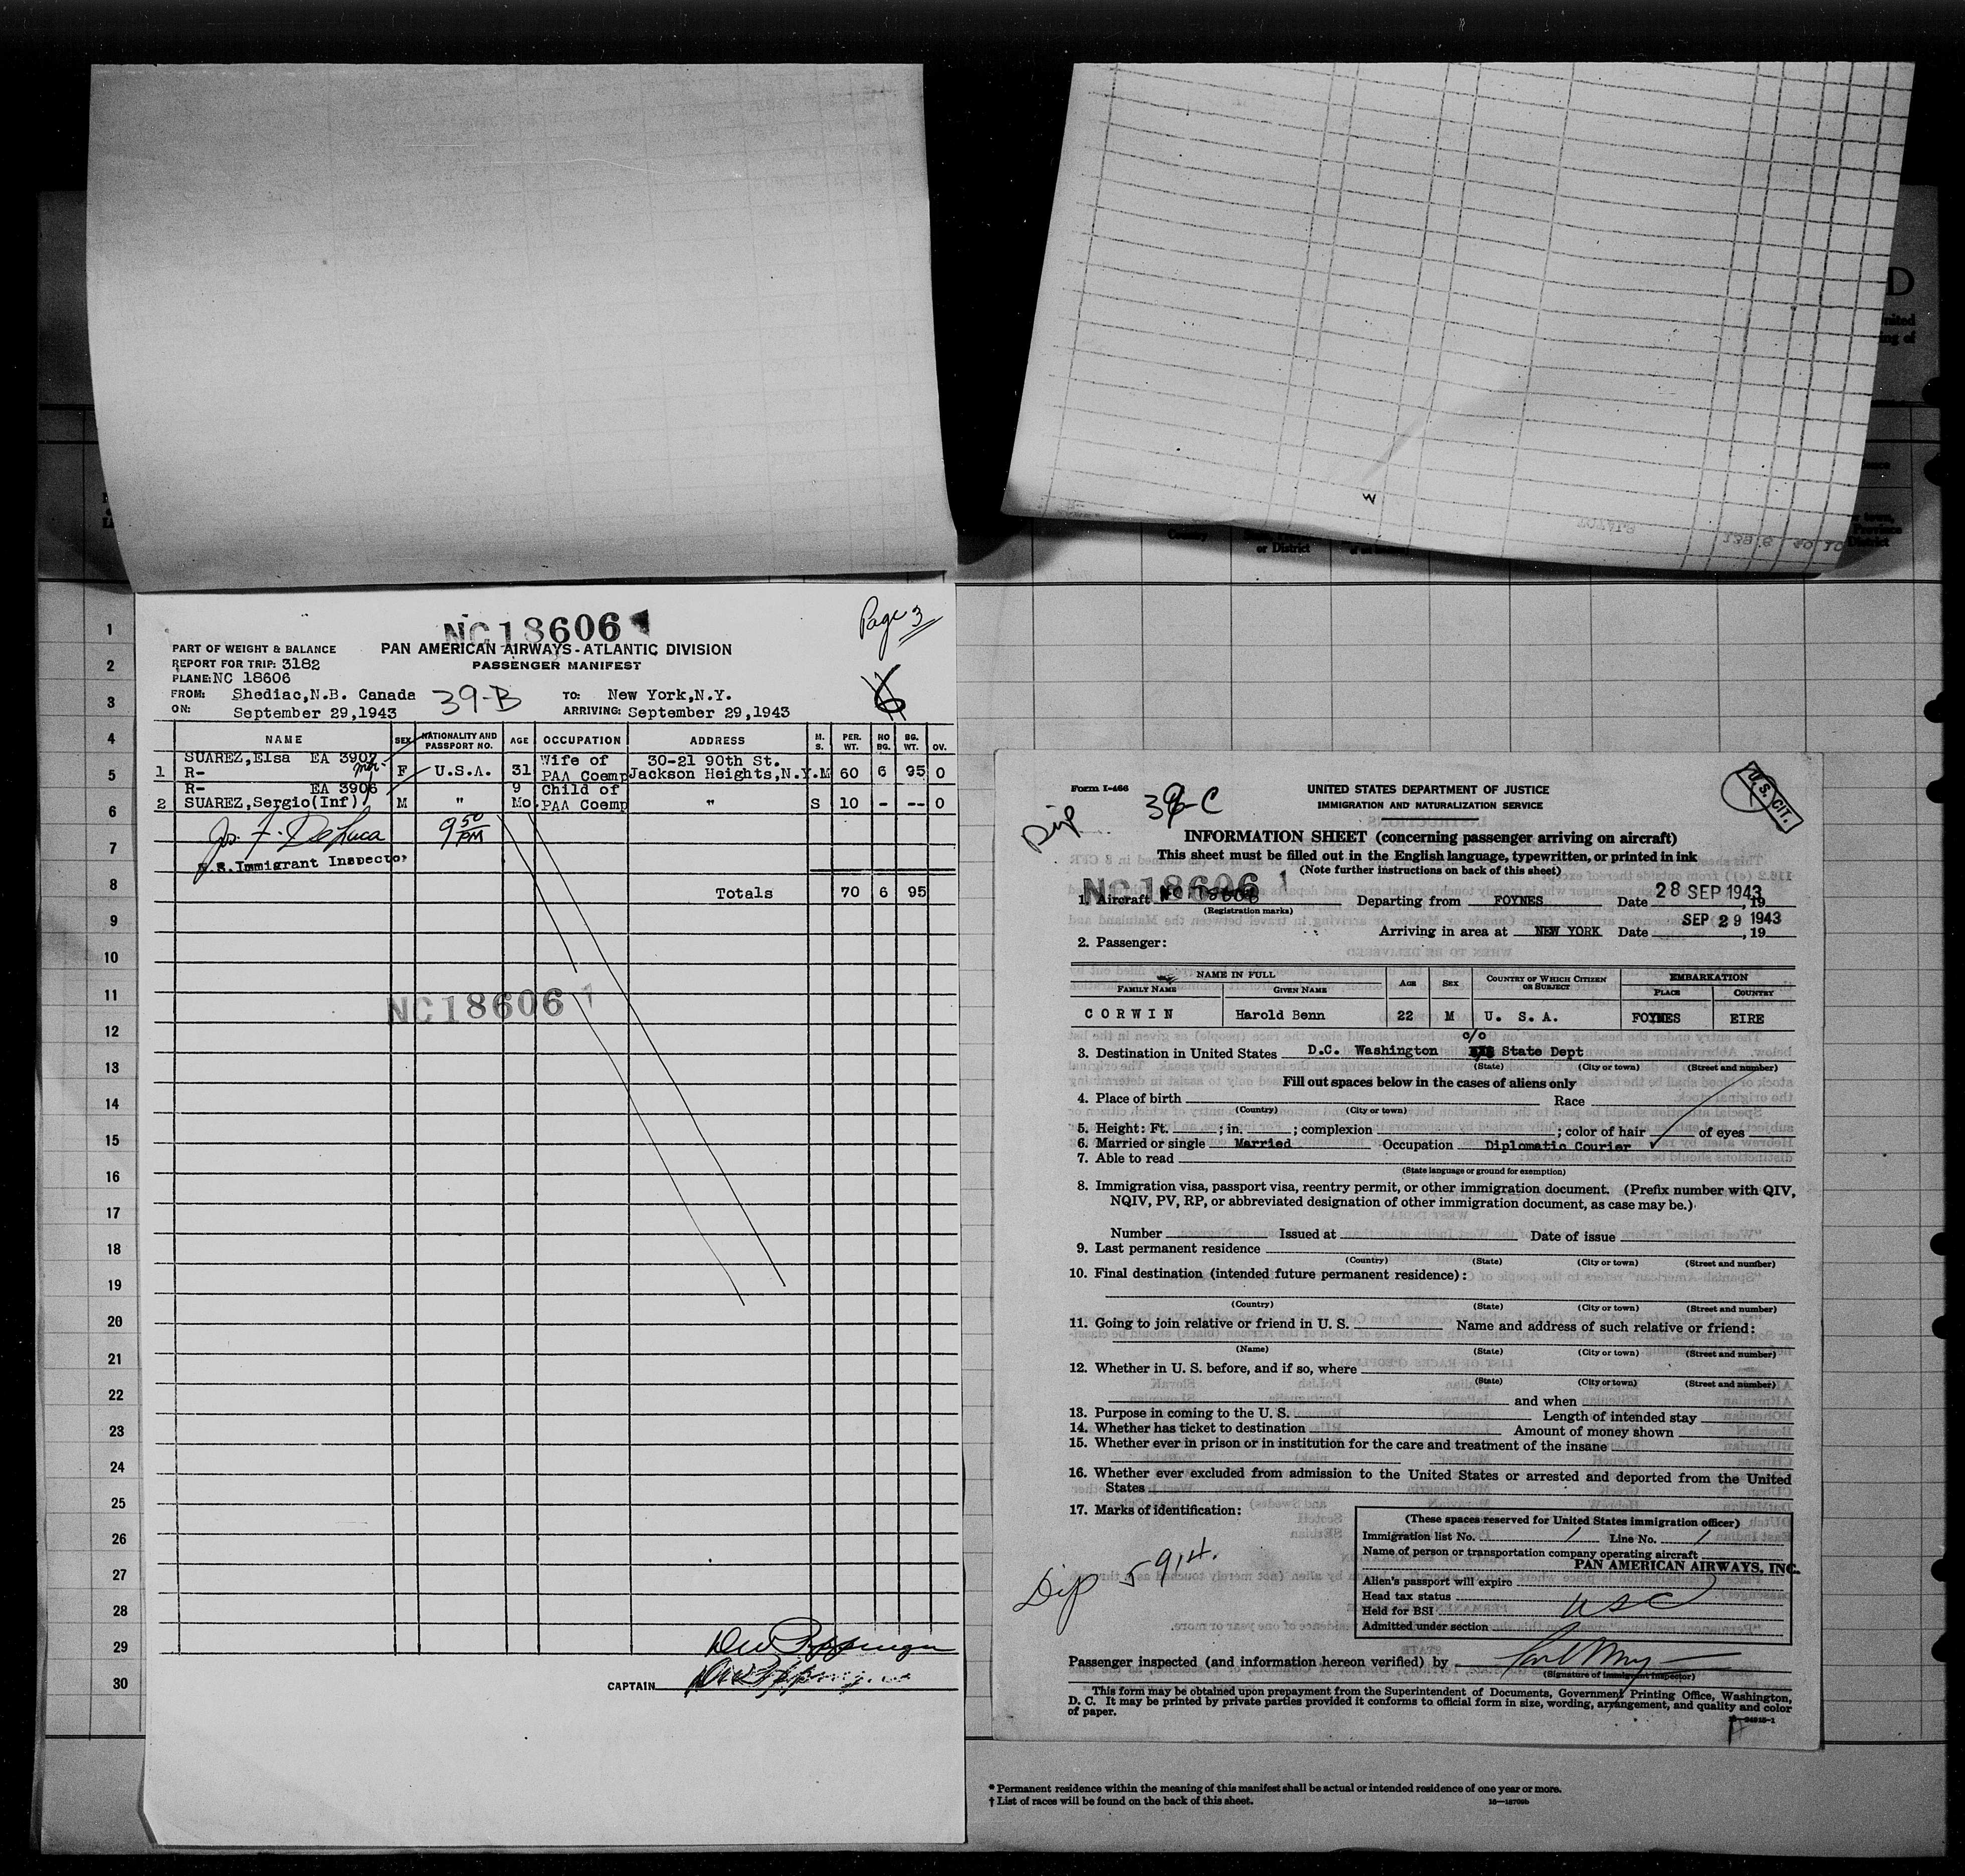 NC18606
Page 3
PART OF WEIGHT & BALANCE
PAN AMERICAN AIRWAYS - ATLANTIC DIVISION
REPORT FOR TRIP: 3182
PASSENGER MANIFEST
PLANE: NC 18606
FROM: Shediac, N.B. Canada
39-B
TO: New York, N.Y.
ON: September 29, 1943
ARRIVING: September 29, 1943
NAME SEX NATIONALITY AND PASSPORT NO. AGE OCCUPATION ADDRESS M. S. PER. WT. NO BG. BG. WT. OV.
SUAREZ, Elsa EA 3907 Wife of 30-21 90th St.
1 R- F U.S.A. 31 PAA Coemp Jackson Heights, N.Y. M 60 6 95 0
R- EA 3906 9 Child of
2 SUAREZ, Sergio (Inf) M " Mo. PAA Coemp " S 10 - -- 0
Jos. F. DeLuca
9 50 PM
U.S. Immigrant Inspector
Totals 70 6 95
NC18606
CAPTAIN
1
2
3
4
5
6
7
8
9
10
11
12
13
14
15
16
17
18
19
20
21
22
23
24
25
26
27
28
29
30
TOTALS
Country
or District
D
Form I-466
Dip
39-C
U.S. CIT.
UNITED STATES DEPARTMENT OF JUSTICE
IMMIGRATION AND NATURALIZATION SERVICE
INFORMATION SHEET (concerning passenger arriving on aircraft)
This sheet must be filled out in the English language, typewritten, or printed in ink
(Note further instructions on back of this sheet)
NC18606
28 SEP 1943
1. Aircraft Departing from FOYNES Date , 19
(Registration marks)
SEP 29 1943
Arriving in area at NEW YORK Date , 19
2. Passenger:
NAME IN FULL AGE SEX COUNTRY OF WHICH CITIZEN OR SUBJECT EMBARKATION
FAMILY NAME GIVEN NAME PLACE COUNTRY
CORWIN Harold Benn 22 M U. S. A. FOYNES EIRE
3. Destination in United States D.C. Washington c/o State Dept
(State) (City or town) (Street and number)
Fill out spaces below in the cases of aliens only
4. Place of birth Race
(Country) (City or town)
5. Height: Ft. ; in. ; complexion ; color of hair of eyes
6. Married or single Married Occupation Diplomatic Courier
7. Able to read
(State language or ground for exemption)
8. Immigration visa, passport visa, reentry permit, or other immigration document. (Prefix number with QIV,
NQIV, PV, RP, or abbreviated designation of other immigration document, as case may be.)
Number Issued at Date of issue
9. Last permanent residence
(Country) (State) (City or town) (Street and number)
10. Final destination (intended future permanent residence):
(Country) (State) (City or town) (Street and number)
11. Going to join relative or friend in U. S. Name and address of such relative or friend:
(Name) (State) (City or town) (Street and number)
12. Whether in U. S. before, and if so, where
(State) (City or town) (Street and number)
and when
13. Purpose in coming to the U. S. Length of intended stay
14. Whether has ticket to destination Amount of money shown
15. Whether ever in prison or in institution for the care and treatment of the insane
16. Whether ever excluded from admission to the United States or arrested and deported from the United
States
17. Marks of identification:
(These spaces reserved for United States immigration officer)
Immigration list No. 1 Line No. 1
Name of person or transportation company operating aircraft
PAN AMERICAN AIRWAYS, INC.
Alien's passport will expire
Head tax status
Held for BSI USC
Admitted under section
Dip 5914.
Passenger inspected (and information hereon verified) by
(Signature of immigrant inspector)
This form may be obtained upon prepayment from the Superintendent of Documents, Government Printing Office, Washington,
D. C. It may be printed by private parties provided it conforms to official form in size, wording, arrangement, and quality and color
of paper.
* Permanent residence within the meaning of this manifest shall be actual or intended residence of one year or more.
† List of races will be found on the back of this sheet.